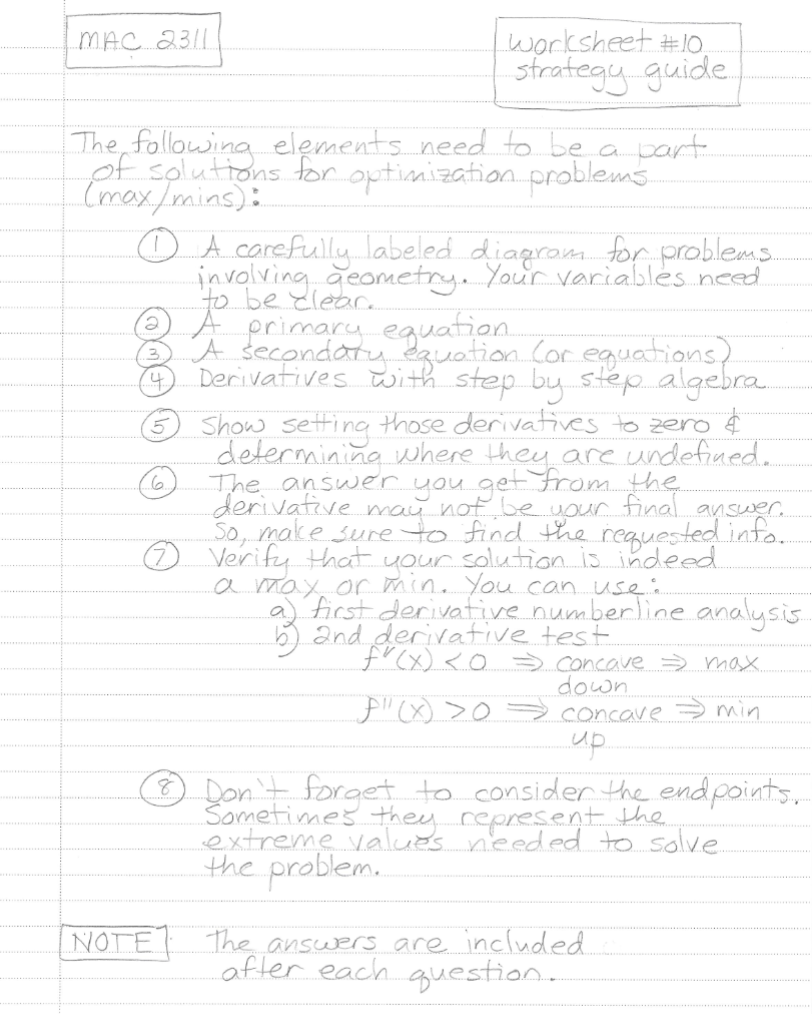 MAC 2311
Worksheet #10
strategy guide
The following elements need to be a part
of solutions for optimization problems
(max/mins):
① A carefully labeled diagram for problems
involving geometry. Your variables need
to be clear.
② A primary equation
③ A secondary equation (or equations)
④ Derivatives with step by step algebra
⑤ Show setting those derivatives to zero &
determining where they are undefined.
⑥ The answer you get from the
derivative may not be your final answer.
So, make sure to find the requested info.
⑦ Verify that your solution is indeed
a max or min. You can use:
a) first derivative numberline analysis
b) 2nd derivative test
f''(x) < 0 ⇒ concave ⇒ max
down
f''(x) > 0 ⇒ concave ⇒ min
up
⑧ Don't forget to consider the endpoints.
Sometimes they represent the
extreme values needed to solve
the problem.
NOTE: The answers are included
after each question.